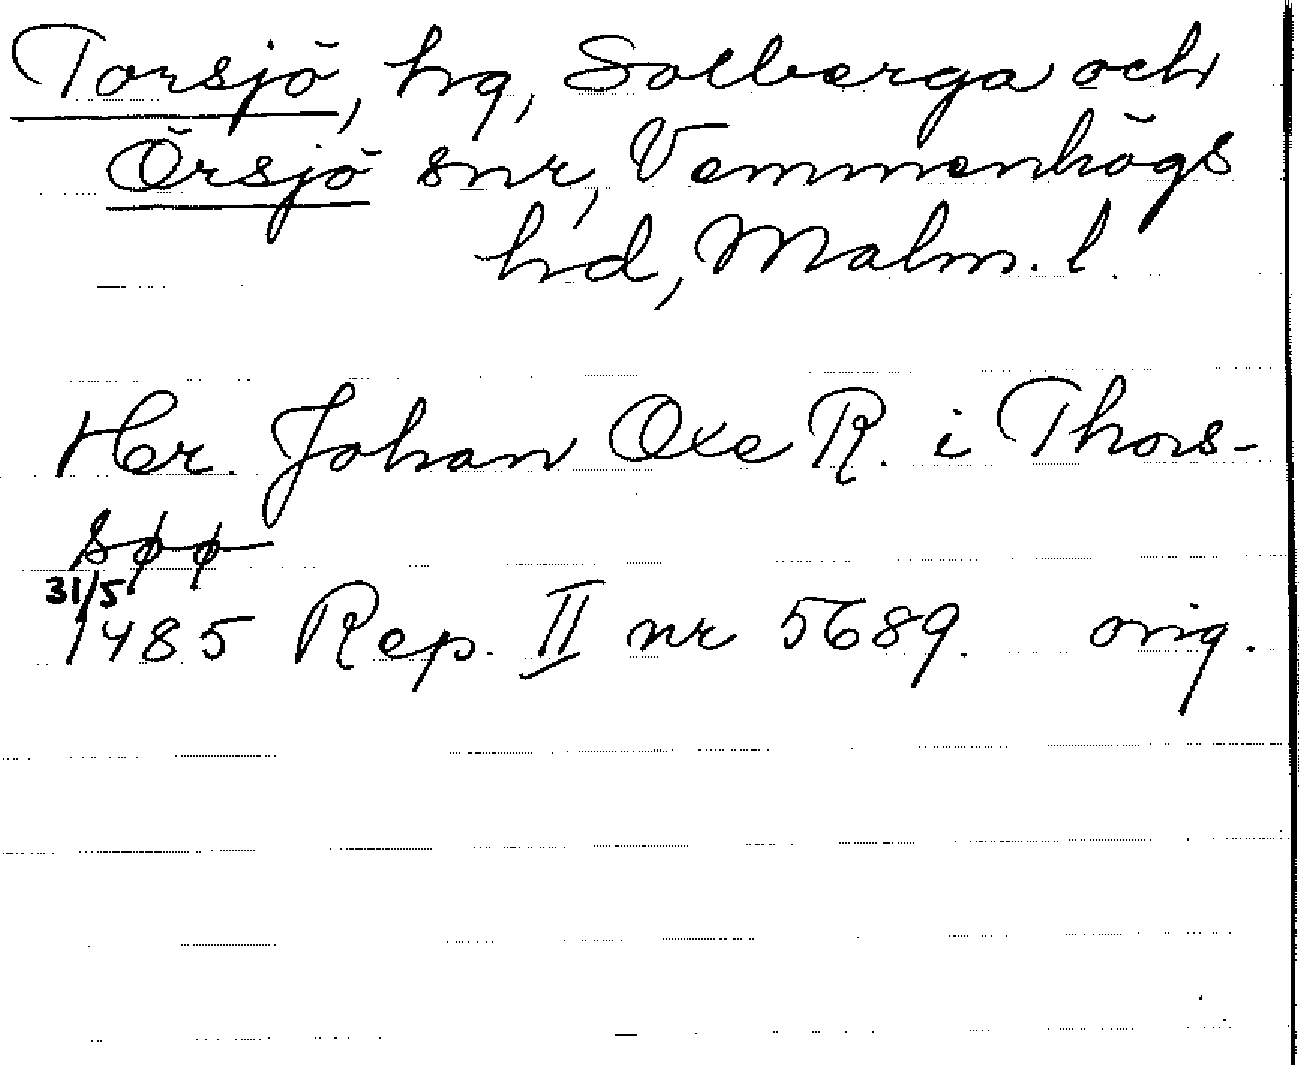 Torsjö, hg, Solberga och
Örsjö snr, Vemmenhögs
hd, Malm. l.
Her. Johan Oxe R. i Thors-
søø
31/5
1485 Rep. II nr 5689. orig.